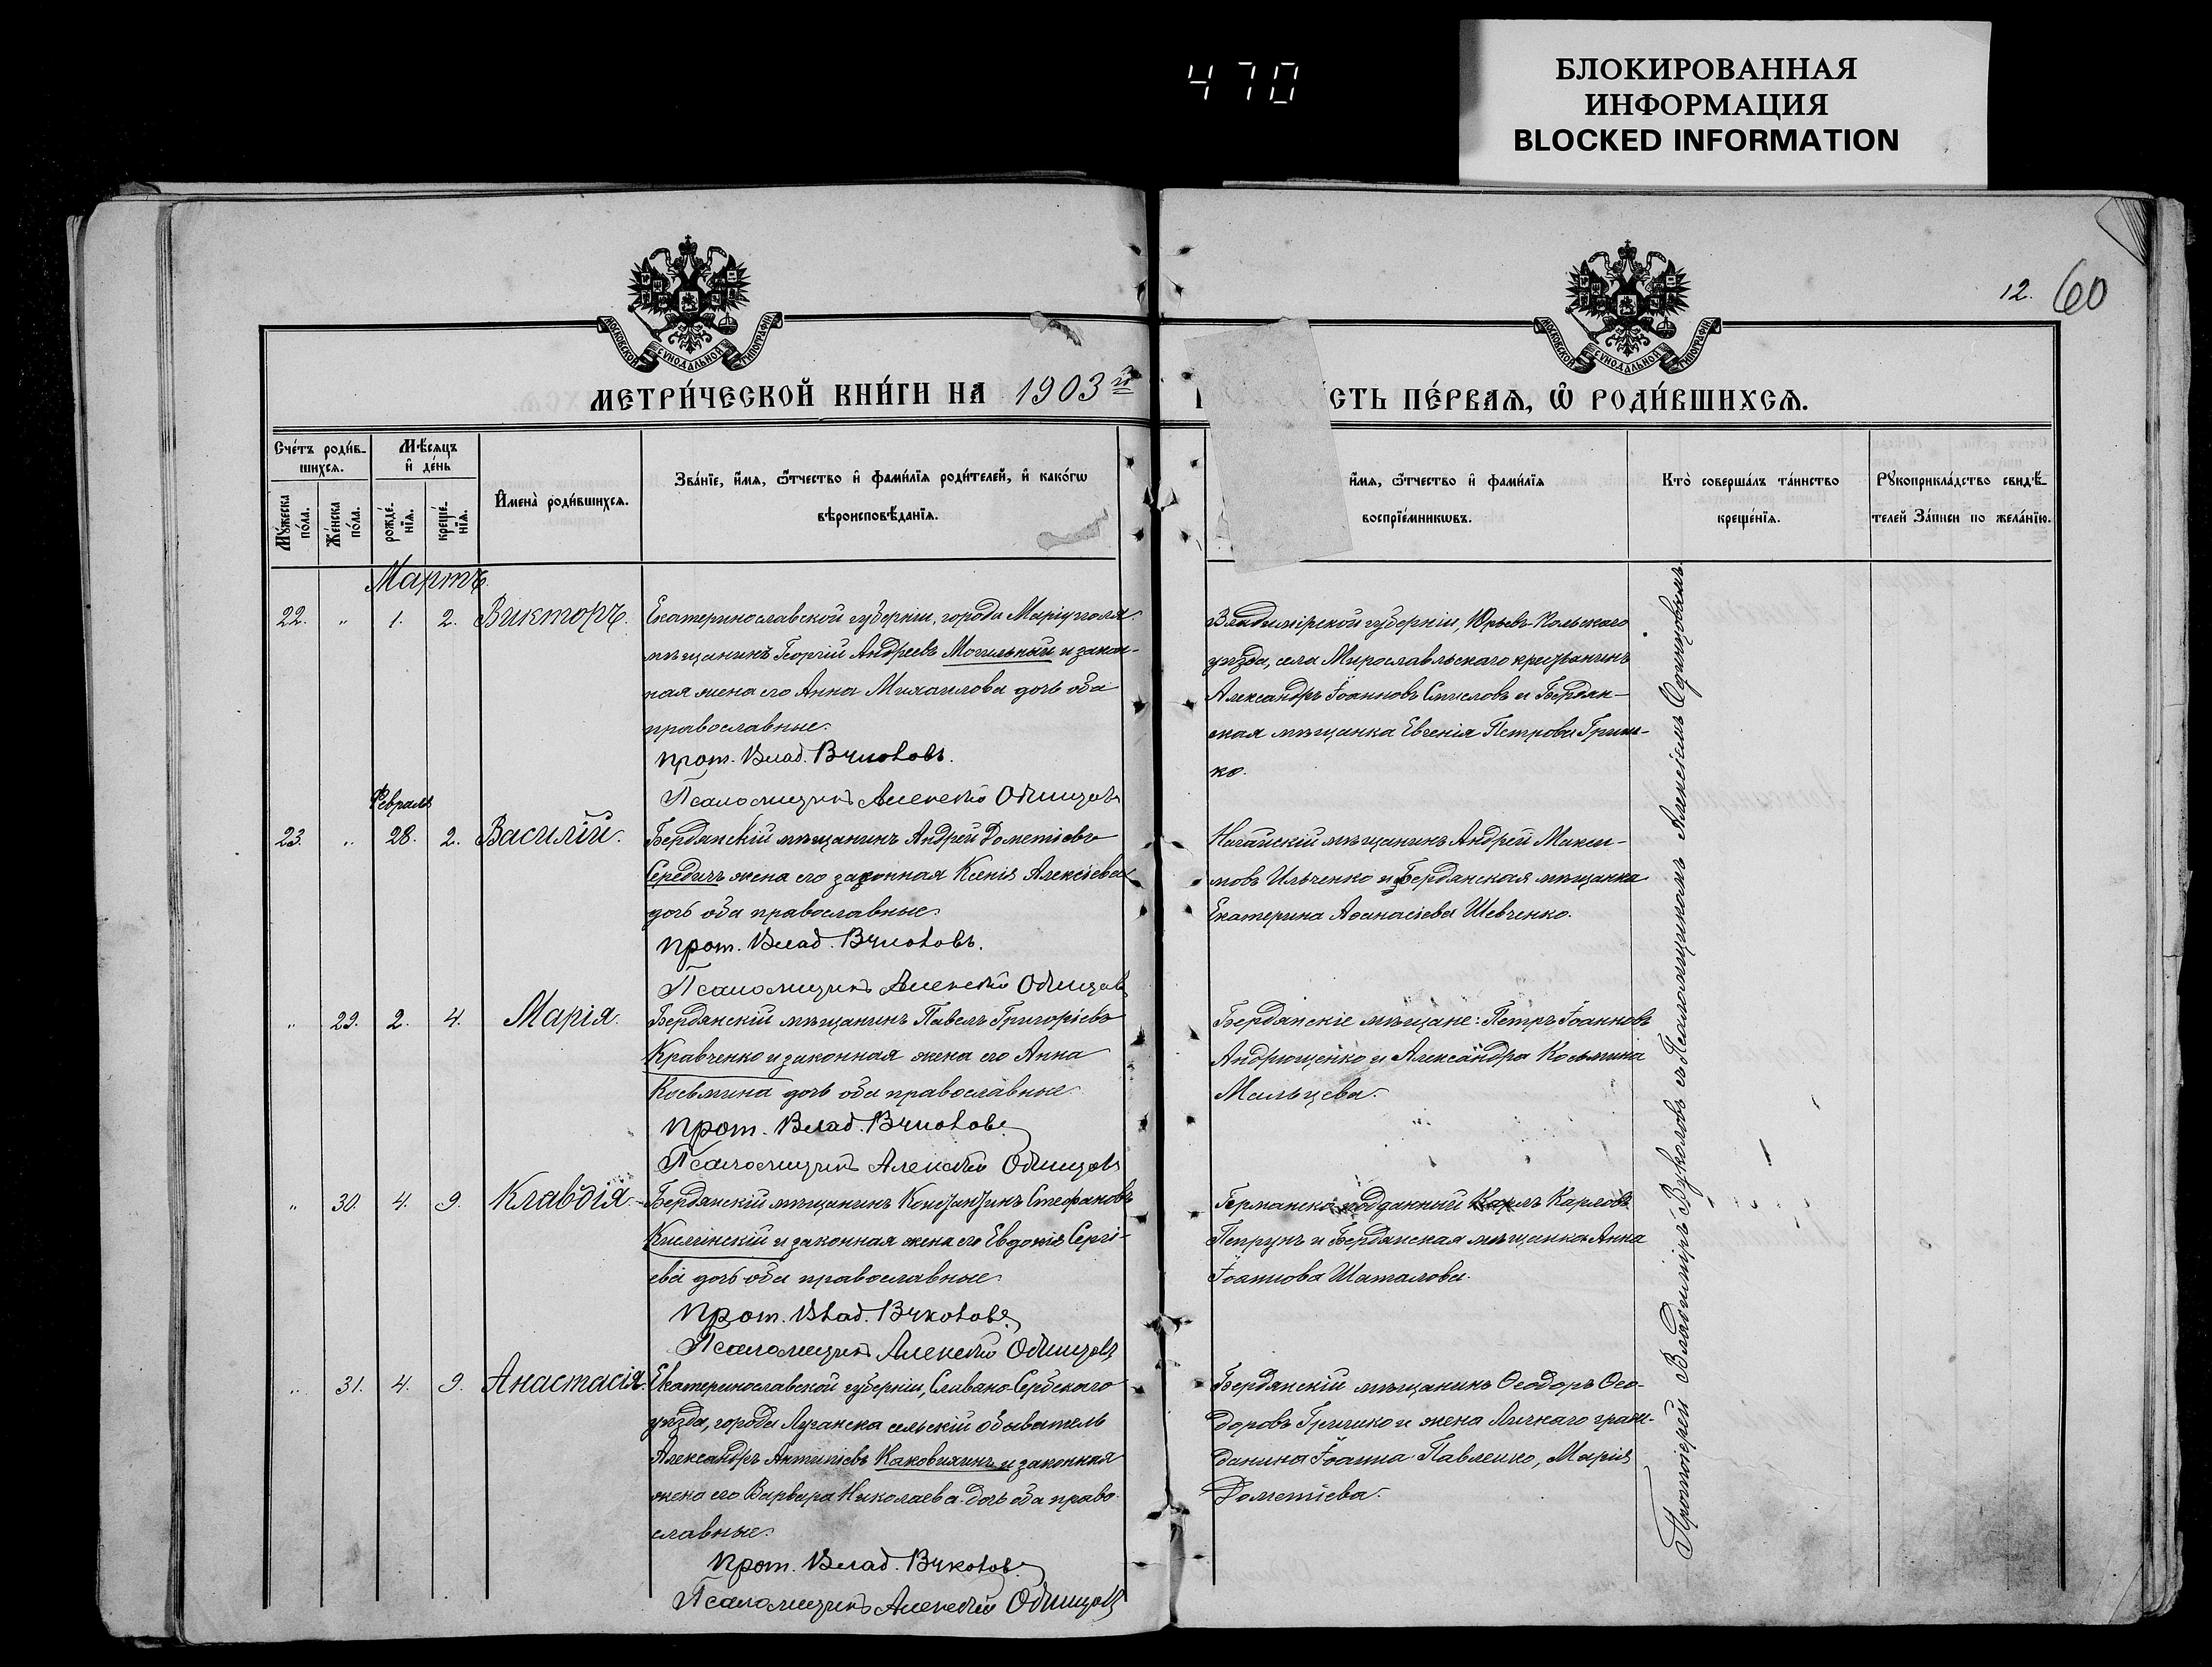 470
БЛОКИРОВАННАЯ
ИНФОРМАЦИЯ
BLOCKED INFORMATION
12. 60
МОСКОВСКОЙ СѴНОДАЛЬНОЙ ТИПОГРАФІИ
МОСКОВСКОЙ СѴНОДАЛЬНОЙ ТИПОГРАФІИ
МЕТРИ́ЧЕСКОЙ КНИ́ГИ НА 1903й
СТЬ ПЕ́РВАѦ, Ѽ РОДИ́ВШИХСѦ.
Сче́тъ роди́в-
шихсѧ.
Мꙋжеска по́ла.
Же́нска по́ла.
Мѣ́сѧцъ
и҆ де́нь
рожде́-нїѧ.
креще́-нїѧ.
И҆мена̀ роди́вшихсѧ.
Зва́нїе, и҆́мѧ, ѻ҆́тчество и҆ фами́лїѧ роди́телей, и҆ како́гѡ
вѣроисповѣ́данїѧ.
и҆́мѧ, ѻ҆́тчество и҆ фами́лїѧ
воспрїе́мникѡвъ.
Кто̀ соверша́лъ та́инство
креще́нїѧ.
Рꙋкоприкла́дство свидѣ́-
телей За́писи по жела́нїю.
Мартъ.
22. " 1. 2. Викторъ.
Екатеринославской губерніи, города Маріуполя
мѣщанинъ Георгій Андреевъ Могильный и закон-
ная жена его Анна Михаилова дочь оба
православные.
прот. Влад. Вуколовъ.
Псаломщикъ Алексѣй Одинцовъ
Владимірской губерніи, Юрьев-Польскаго
уѣзда, села Мирославльскаго крестьянинъ
Александръ Іоанновъ Смысловъ и Бердян-
ская мѣщанка Евгенія Петрова Гриш-
ко.
Февраль
23. " 28. 2. Василій.
Бердянскій мѣщанинъ Андрей Дометіевъ
Середичъ жена его законная Ксенія Алексіева
дочь оба православные.
прот. Влад. Вуколовъ.
Псаломщикъ Алексѣй Одинцовъ
Ногайскій мѣщанинъ Андрей Макси-
мовъ Ильченко и Бердянская мѣщанка
Екатерина Аѳанасіева Шевченко.
" 29. 2. 4. Марія.
Бердянскій мѣщанинъ Павелъ Григоріевъ
Кравченко и законная жена его Анна
Косьмина дочь оба православные
прот. Влад. Вуколовъ.
Псаломщикъ Алексѣй Одинцовъ
Бердянскіе мѣщане: Петръ Іоанновъ
Андрющенко и Александра Косьмина
Мальцева.
" 30. 4. 9. Клавдія.
Бердянскій мѣщанинъ Константинъ Стефановъ
и законная жена его Евдокія Сергі-
ева дочь оба православные
прот. Влад. Вуколовъ.
Псаломщикъ Алексѣй Одинцовъ
Германско-подданный Карлъ Карловъ
и Бердянская мѣщанка Анна
Іоаннова Шаталова.
" 31. 4. 9. Анастасія.
Екатеринославской губерніи, Славяно-Сербскаго
уѣзда, города Луганска сельскій обыватель
Александръ Антипіевъ Каковихинъ и законная
жена его Варвара Николаева дочь оба право-
славные.
прот. Влад. Вуколовъ.
Псаломщикъ Алексѣй Одинцовъ
Бердянскій мѣщанинъ Ѳеодоръ Ѳео-
доровъ Гришко и жена Личнаго граж-
данина Іоанна Павленко, Марія
Дометіева.
Протоіерей Владиміръ Вуколовъ съ Псаломщикомъ Алексіемъ Одинцовымъ